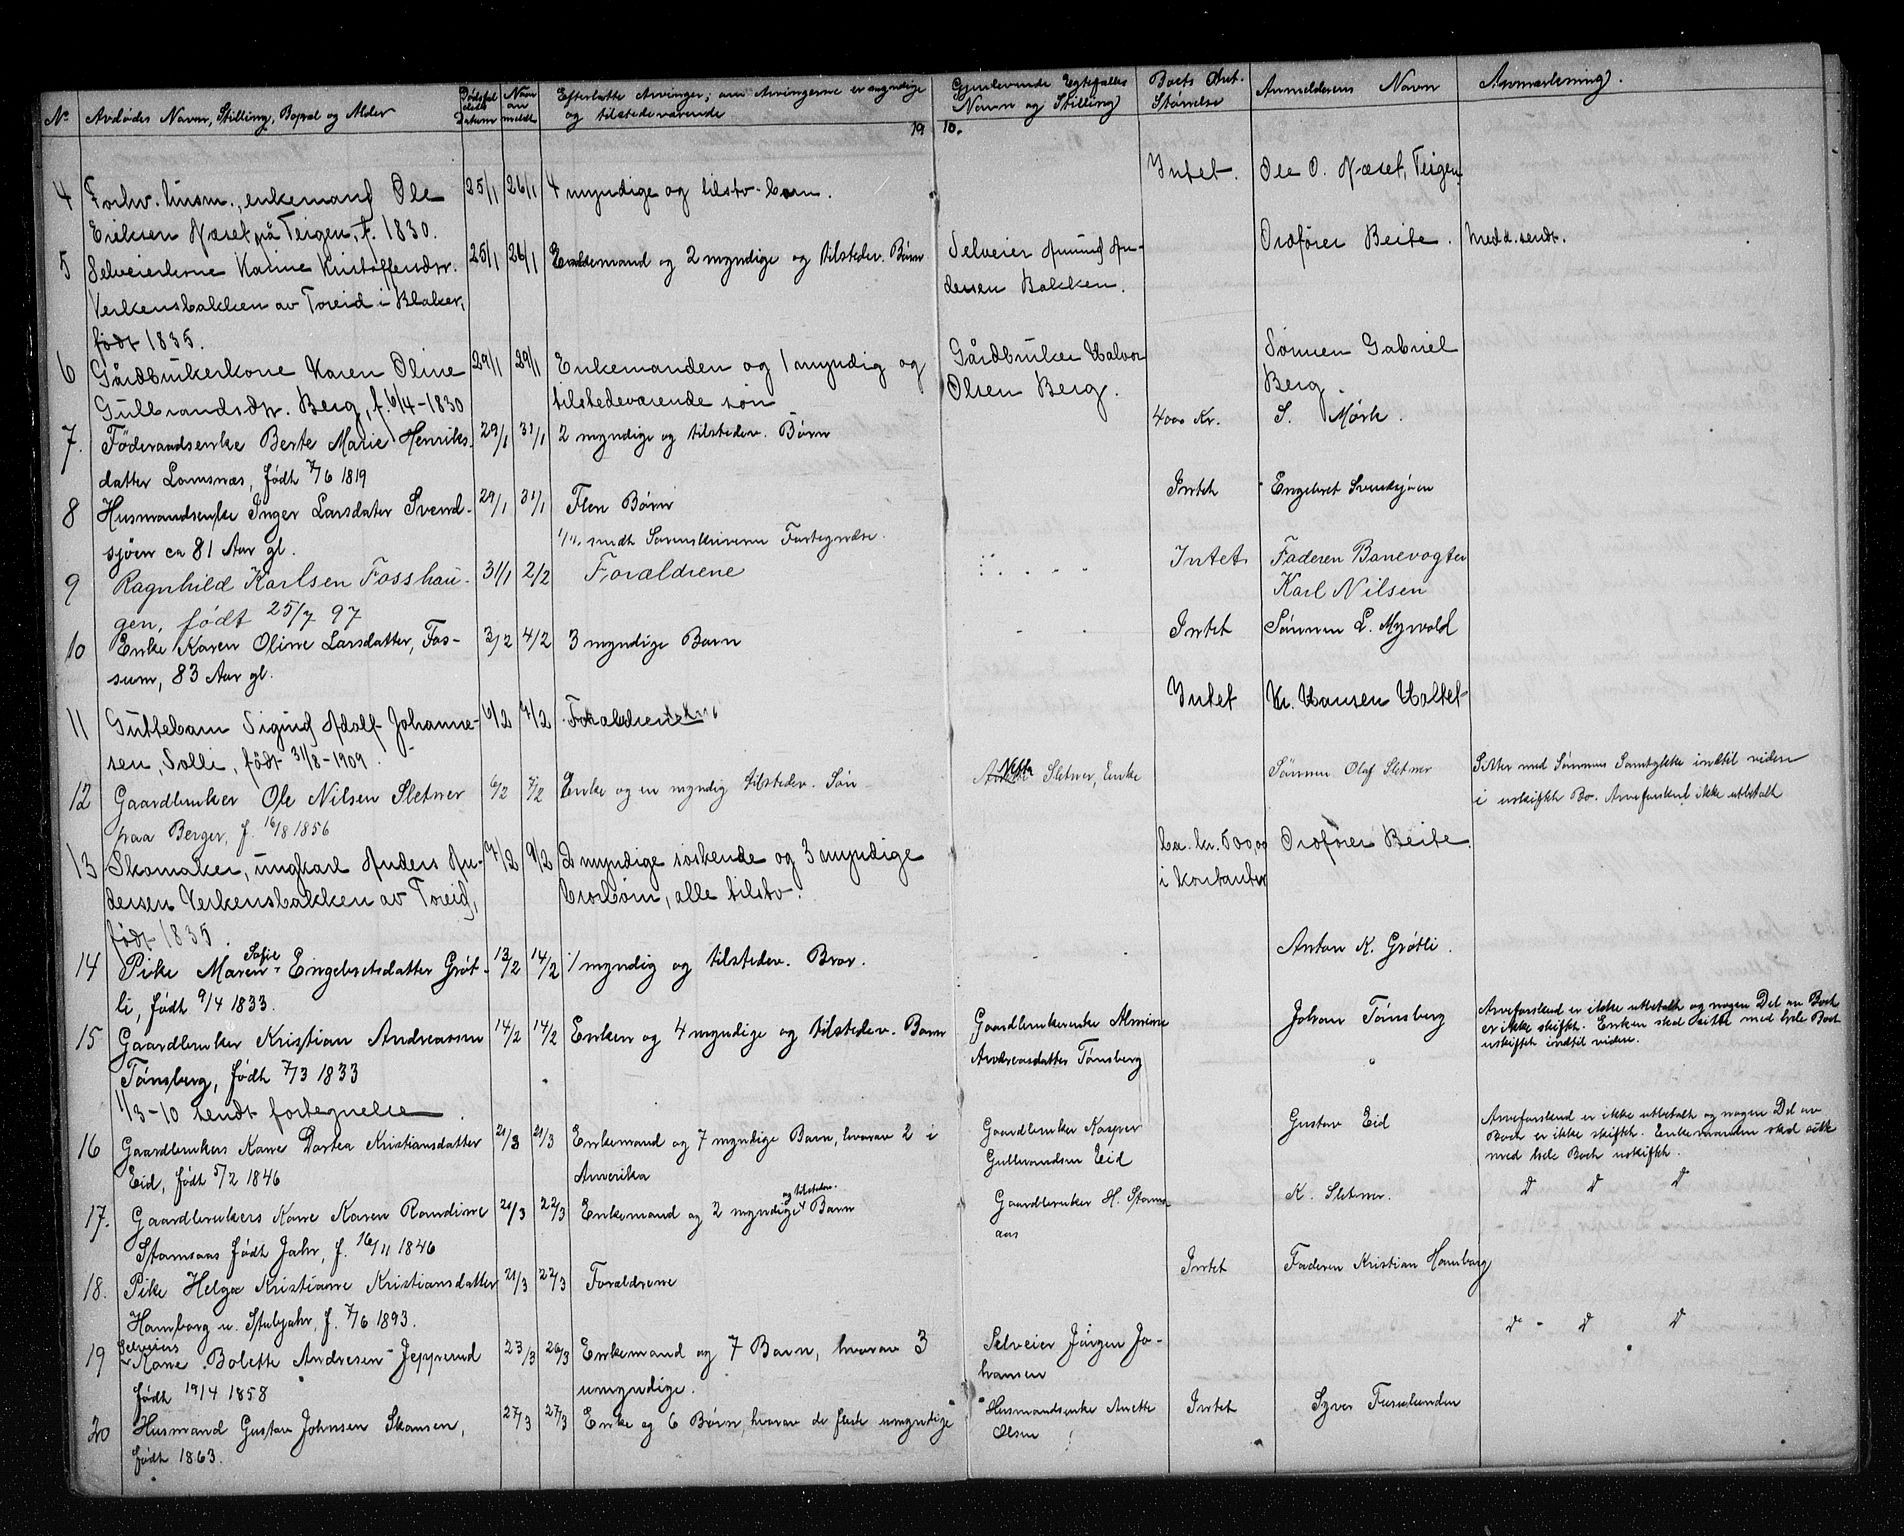 No Avdødes Navn, Stilling, Bopæl og Alder Dødsfaldets Datum Naar anmeldt Efterlatte Arvinger; om Arvingerne er myndige og tilstedeværende Gjenlevende Egtefælles Navn og Stilling Boets Omt. Størrelse Anmelderens Navn Anmerkning.
19 10.
4 Forhv. husm., enkemand Ole 25/1 26/1 4 myndige og tilstv. barn. Intet. Ole O. Næset, Teigen
Eriksen Næset på Teigen, f. 1830.
5 Selveierkone Karine Kristoffersdtr. 25/1 26/1 Enkemand og 2 myndige og tilstedev. Børn Selveier Amund An- Ordfører Beite. Medd. sendt.
Verkensbakken av Toreid i Blaker, dersen Bakken.
født 1835.
6 Gårdbrukerkone Karen Oline 29/1 29/1 Enkemanden og 1 myndig og Gårdbruker Halvor Sønnen Gabriel
Gulbrandsdtr. Berg, f. 6/4-1830 tilstedeværende søn Olsen Berg. Berg.
7. Føderaadsenke Berte Marie Henriks- 29/1 31/1 2 myndige og tilstedev. Børn 4000 Kr. S. Mørk.
datter Lomsnæs, født 7/6 1819
8 Husmandsenke Inger Larsdater Svend- 29/1 31/1 Flere Børn Intet Engebret Svendsjøen
sjøen ca 81 Aar gl. sendt Sorenskriveren Fortegnelse.
9 Ragnhild Karlsen Fosshau- 31/1 2/2 Forældrene Intet Faderen Banevogter
gen, født 25/7 97 Karl Nilsen
10 Enke Karen Oline Larsdatter, Fos- 3/2 4/2 3 myndige Barn Intet Sønnen L. Myrvold
sum, 83 Aar gl.
11 Guttebarn Sigurd Adolf Johanne- 6/2 7/2 Forældrene Intet Kr. Hansen Holtet
sen, Solli, født 31/8-1909.
12 Gaardbruker Ole Nilsen Sletner 6/2 7/2 Enke og en myndig tilstedev. Søn Sletner, Enke Sønnen Olaf Sletner Sitter med Sønnens Samtykke indtil videre
paa Berger, f. 16/8 1856 i uskiftet Bo. Arveforskud ikke utbetalt
13 Skomaker, ungkarl Anders An- 7/2 9/2 2 myndige søskende og 3 myndige ca. kr. 500,00 Ordfører Beite.
dersen Verkensbakken av Toreid, brorbørn, alle tilstv. i kontanter
født 1835.
14 Pike Maren Sofie Engebretsdatter Grøt- 13/2 14/2 1 myndig og tilstedev. Bror. Anton K. Grøtli.
li, født 9/4 1833.
15 Gaardbruker Kristian Andreassen 14/2 14/2 Enken og 4 myndige og tilstedev. Barn Gaardbrukerenke Almine Johan Tønsberg Arveforskud er ikke utbetalt og nogen Del av Boet
Tønsberg, født 7/3 1833 Andreasdatter Tønsberg er ikke skiftet. Enken skal sitte med hele Boet
1/3-10 sendt fortegnelse uskiftet indtil videre.
16 Gaardbrukers Kone Dortea Kristiansdatter 21/3 21/3 Enkemand og 7 myndige Barn, hvorav 2 i Gaardbruker Kasper Gustav Eid Arveforskud er ikke utbetalt og nogen Del av
Eid, født 5/2 1846 Amerika Gulbrandsen Eid Boet er ikke skiftet. Enkemanden skal sitte
med hele Boet uskiftet.
17. Gaardbrukers Kone Karen Randine 21/3 22/3 Enkemand og 2 myndige og tilstedev. Barn Gaardbruker H. Stams- K. Sletner. d d d
Stamsaas født Jahr, f. 16/11 1846 aas
18. Pike Helga Kristiane Kristiansdatter 21/3 22/3 Forældrene Intet Faderen Kristian Hamborg
Hamborg u. Stubjahr, f. 7/6 1893.
19 Selveiers Kone Bolette Andresen Jepperud 23/3 26/3 Enkemand og 7 Barn, hvorav 3 Selveier Jørgen Jo- d d d
født 19/4 1858 umyndige. hansen
20 Husmand Gustav Johnsen Skansen, 27/3 27/3 Enke og 6 Børn, hvorav de fleste umyndige Husmandsenke Anette Intet Syver Fusslunden
født 1863. Olsen